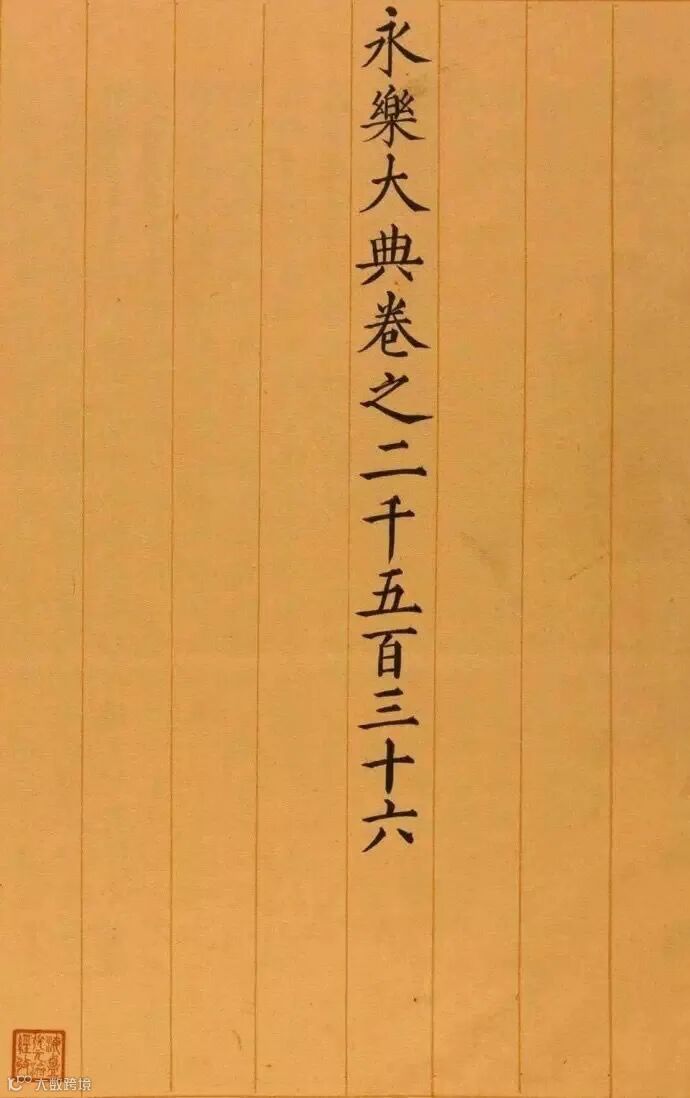 永樂大典卷之二千五百三十六
大数跨境